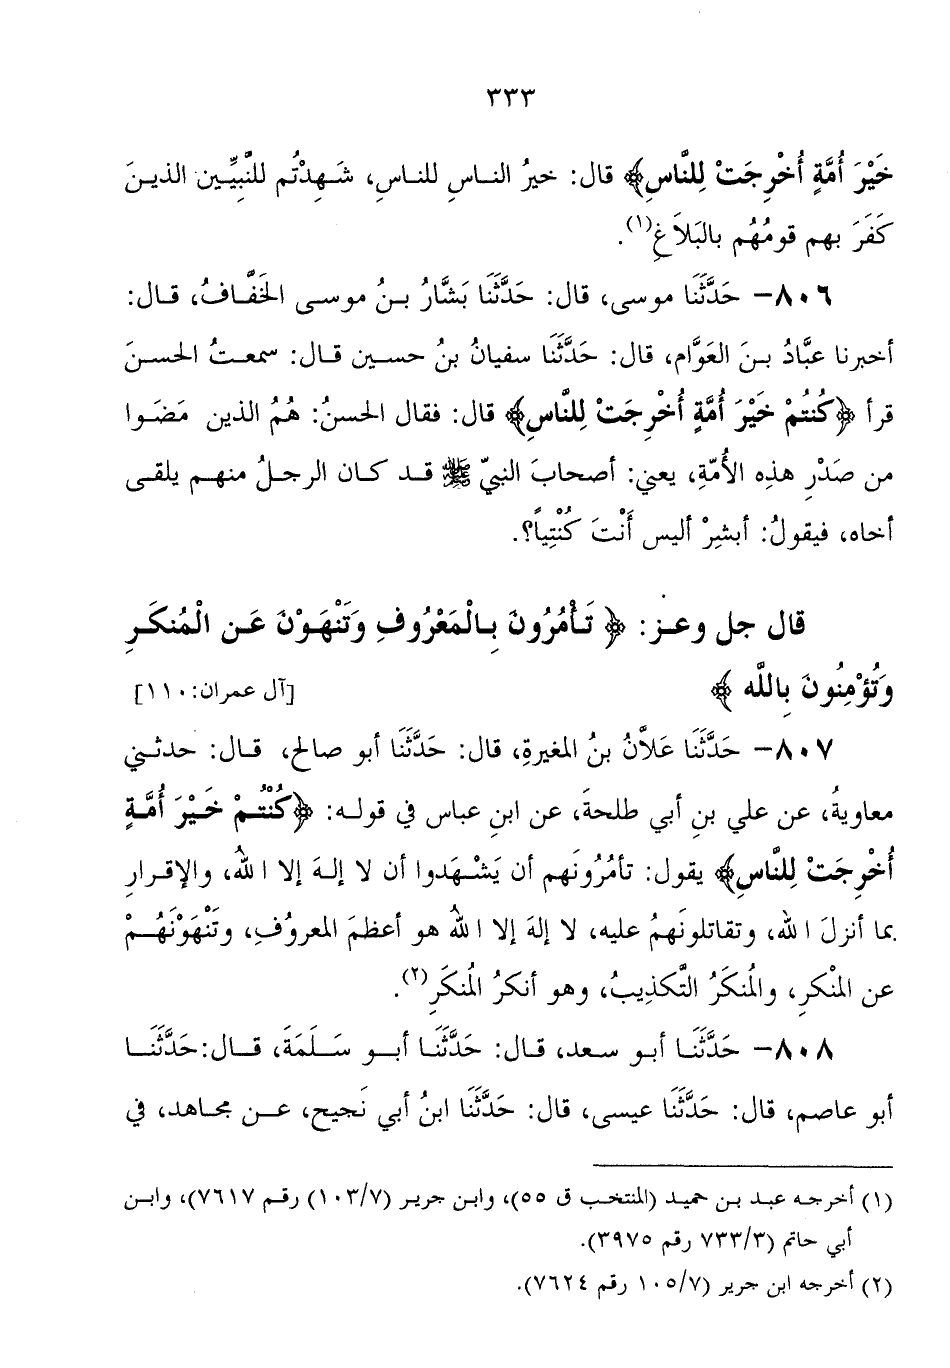 ٣٣٣
خَيْرَ أُمَّةٍ أُخْرِجَتْ لِلنَّاسِ﴾ قال: خيرُ الناسِ للناسِ، شَهِدْتُم للنَّبِيِّين الذينَ
كَفَرَ بهم قومُهُم بالبَلاَغِ(١).
٨٠٦- حَدَّثَنَا موسى، قال: حَدَّثَنَا بَشَّارُ بنُ موسى الخَفَّافُ، قال:
أخبرنا عبَّادُ بنَ العَوَّام، قال: حَدَّثَنَا سفيانُ بنُ حسين قال: سمعتُ الحسنَ
قرأ ﴿كُنتُمْ خَيْرَ أُمَّةٍ أُخْرِجَتْ لِلنَّاسِ﴾ قال: فقال الحسنُ: هُمُ الذين مَضَوا
من صَدْرِ هذِه الأُمّةِ، يعني: أصحابَ النبيّ ﷺ قد كان الرجلُ منهم يلقى
أخاه، فيقولُ: أبشِرْ أليس أَنْتَ كُنْتِياً؟.
قال جل وعز: ﴿ تَأْمُرُونَ بِالْمَعْرُوفِ وَتَنْهَوْنَ عَنِ الْمُنكَرِ
وَتُؤْمِنُونَ بِاللَّه ﴾ [آل عمران: ١١٠]
٨٠٧- حَدَّثَنَا عَلاَّنُ بنُ المغيرةِ، قال: حَدَّثَنَا أبو صالح، قال: حدثني
معاويةُ، عن علي بنِ أبي طلحةَ، عن ابنِ عباس في قوله: ﴿كُنْتُمْ خَيْرَ أُمَّةٍ
أُخْرِجَتْ لِلنَّاسِ﴾ يقول: تأمُرُونَهم أن يَشْهَدوا أن لا إلهَ إلا اللهُ، والإقرارِ
بما أنزلَ اللهُ، وتقاتلونَهمُ عليه، لا إلهَ إلا اللهُ هو أعظمَ المعروُفِ، وتَنْهَوْنَهُمْ
عن المنْكرِ، والُمنكَرُ التَّكذِيبُ، وهو أنكرُ الُمنكَرِ(٢).
٨٠٨- حَدَّثَنَا أبو سعد، قال: حَدَّثَنَا أبو سَلَمَةَ، قال:حَدَّثَنَا
أبو عاصم، قال: حَدَّثَنَا عيسى، قال: حَدَّثَنَا ابنُ أبي نَجيح، عن مجاهد، في
(١) أخرجه عبد بن حميد (المنتخب ق ٥٥)، وابن جرير (١٠٣/٧) رقم ٧٦١٧)، وابن
أبي حاتم (٧٣٣/٣ رقم ٣٩٧٥).
(٢) أخرجه ابن جرير (١٠٥/٧ رقم ٧٦٢٤).